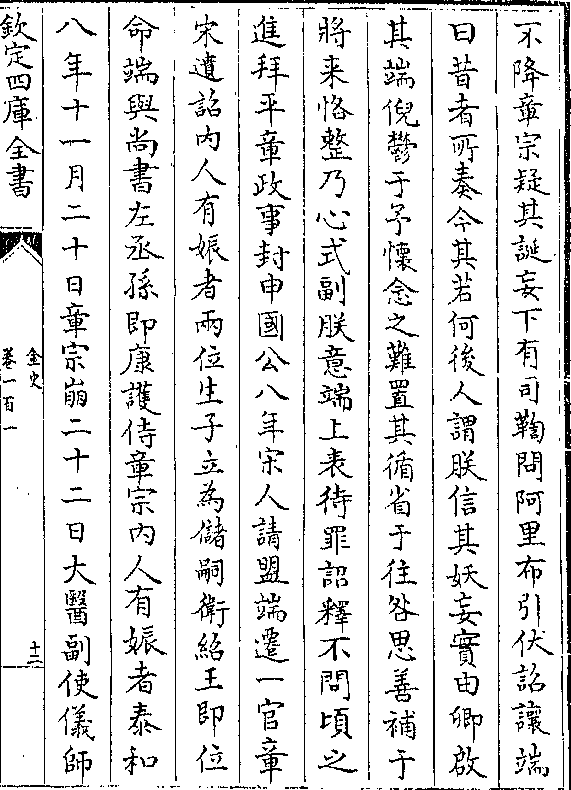 不降章宗疑其誕妄下有司鞫問阿里布引伏詔讓端
曰昔者所奏今其若何後人謂朕信其妖妄實由卿啟
其端倪鬱于予懷念之難置其循省于往咎思善補于
將来恪整乃心式副朕意端上表待罪詔釋不問頃之
進拜平章政事封申國公八年宋人請盟端遷一官章
宗遺詔内人有娠者兩位生子立為儲嗣衛紹王即位
命端與尚書左丞孫即康護侍章宗内人有娠者泰和
八年十一月二十日章宗崩二十二日大醫副使儀師
欽定四庫全書
金史
卷一百一
十二